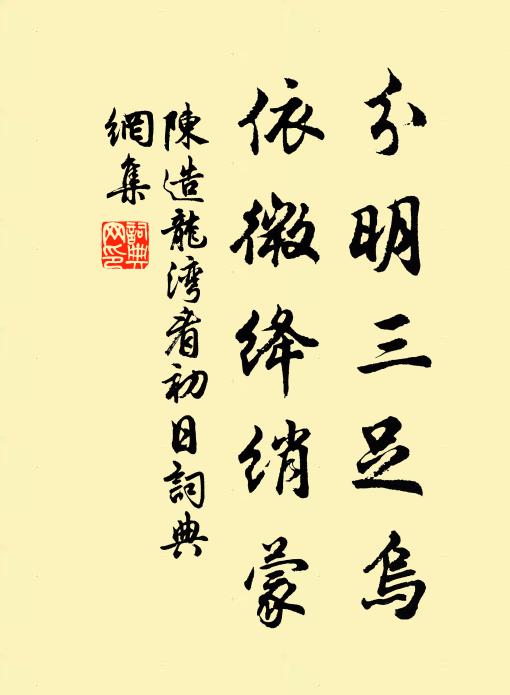 分明三足烏
依微絳綃蒙
陳造龍湾看初日詞典
網集
詞典
网印